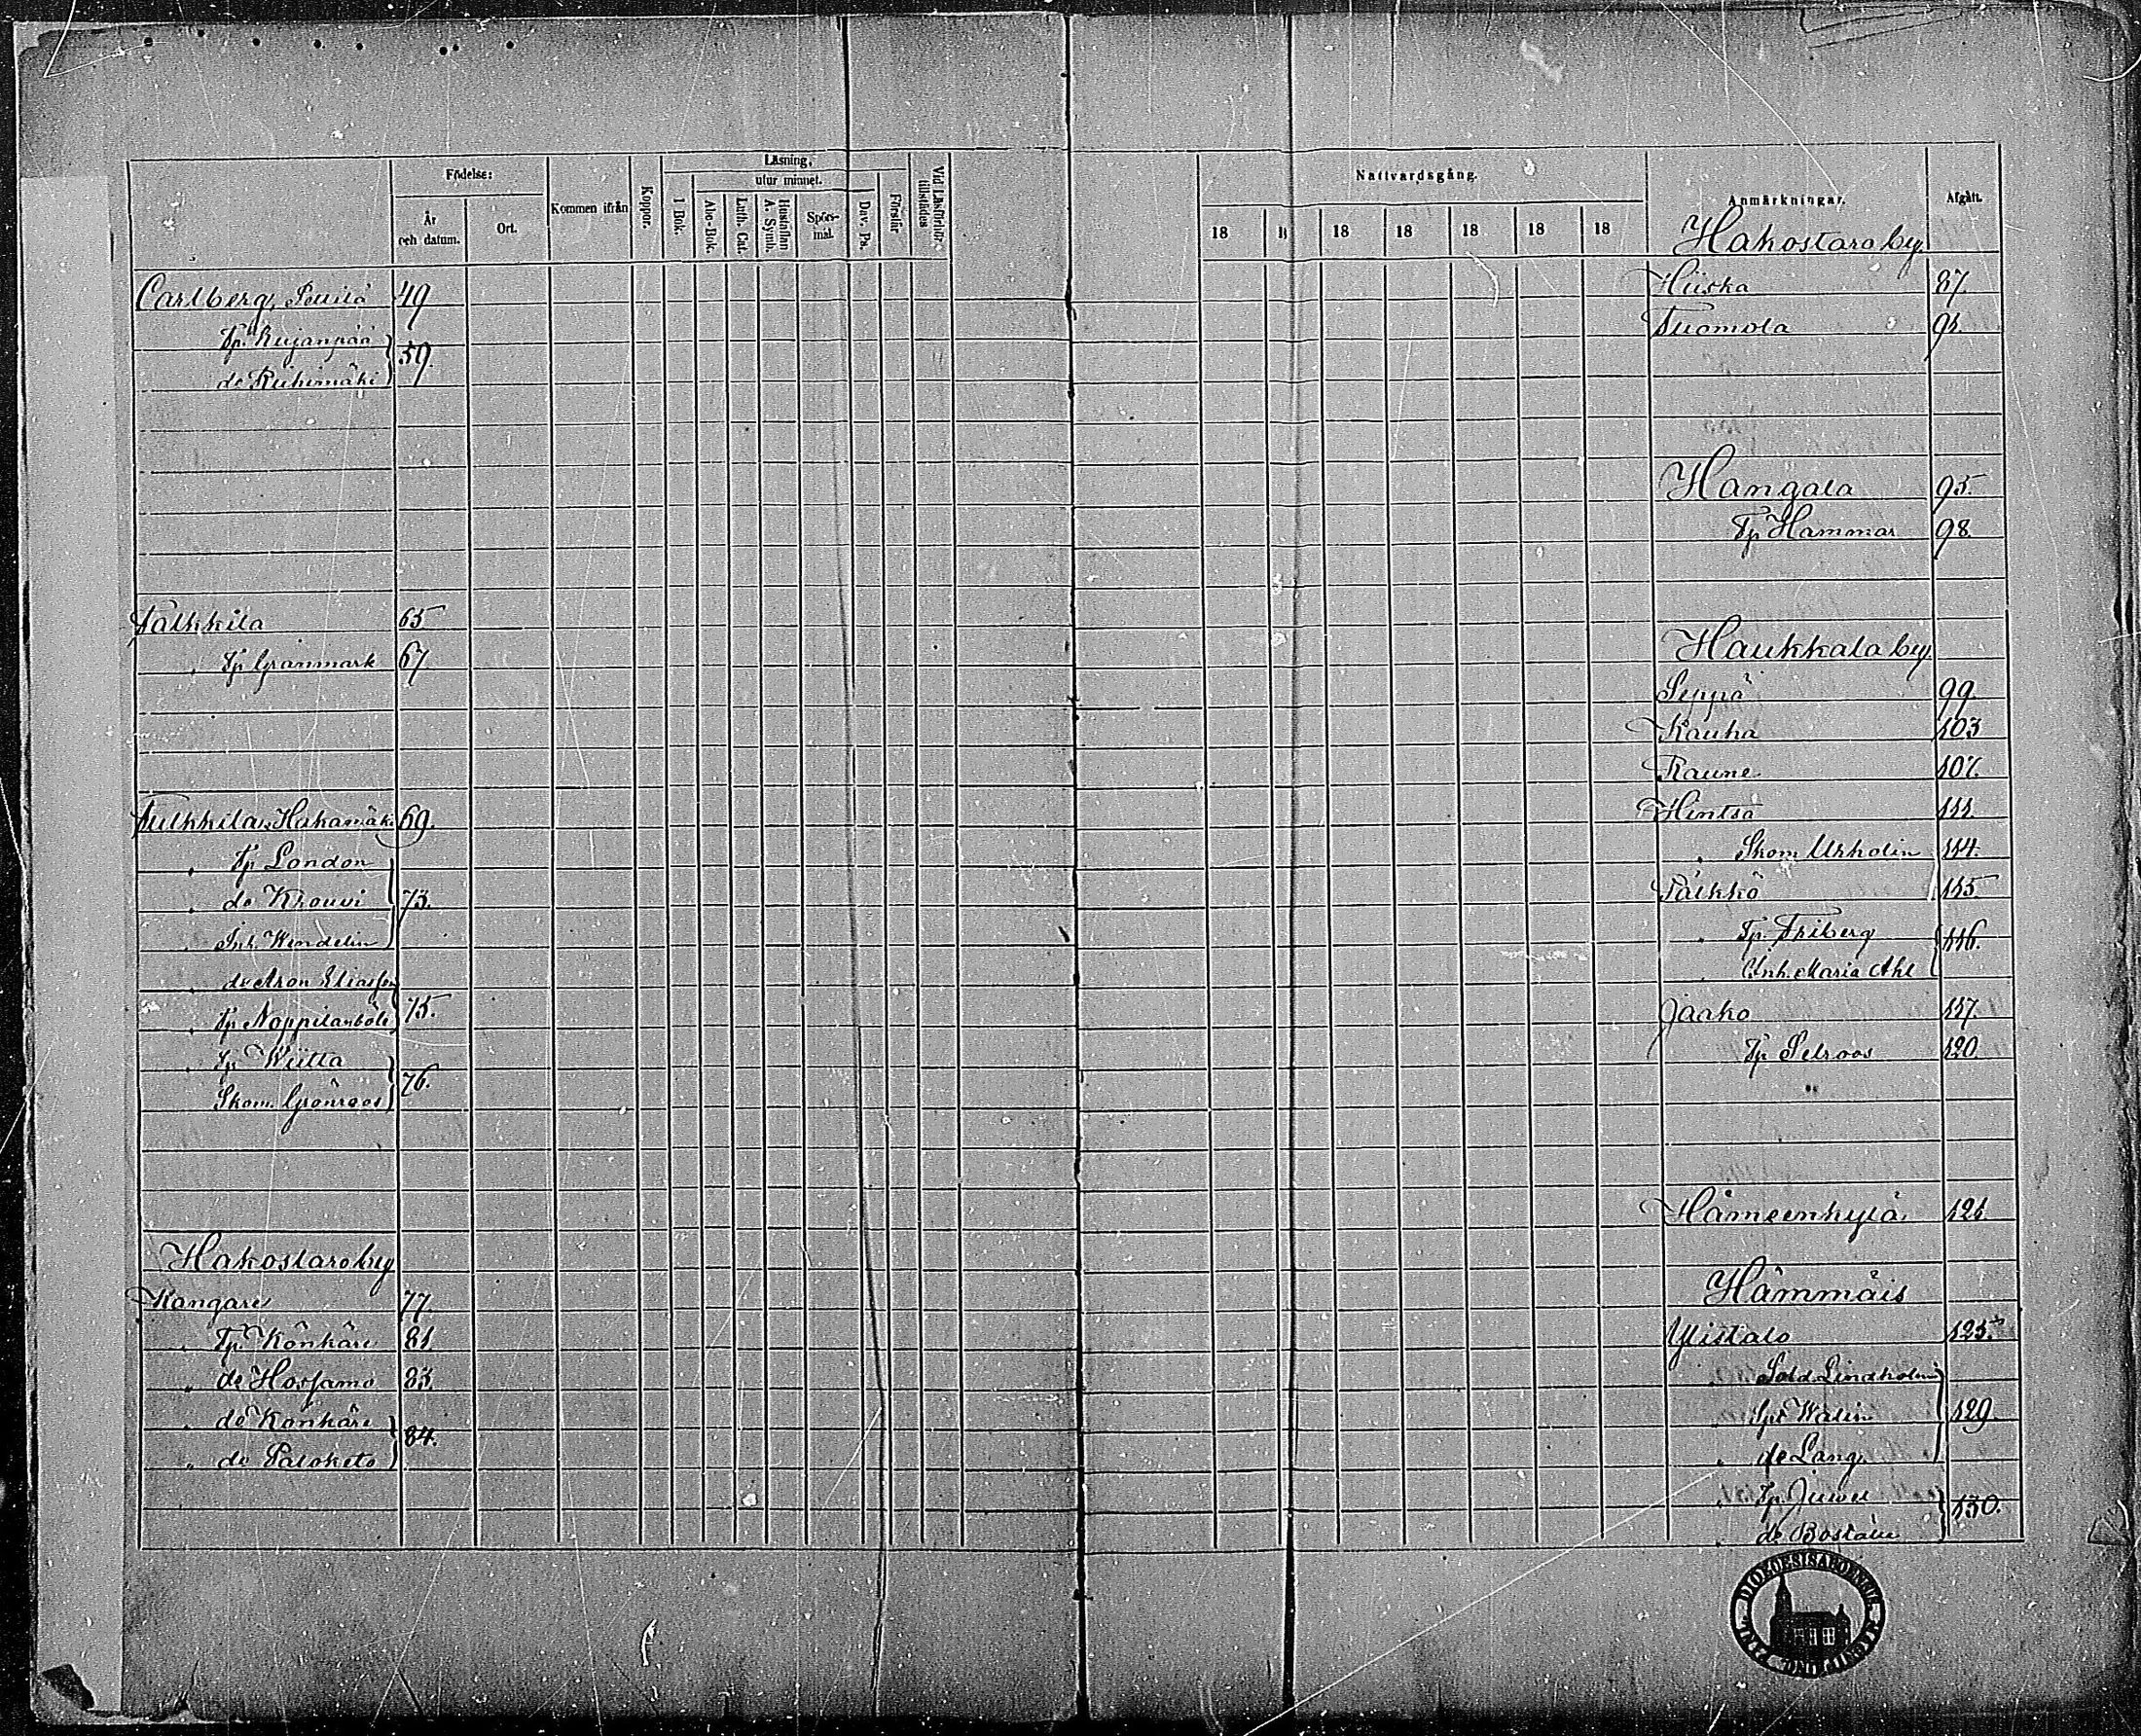 Födelse:
År
och datum.
Ort.
Kommen ifrån
Koppor.
Läsning,
utur minnet.
1 Bok.
Abc-Bok.
Luth. Cat.
Hustaflan
A. Symb.
Spörs-
mål.
Dav. Ps.
Förstår
Vid Läsförhör
tillstädes
Carlberg, 49
Tp. Kujanpää
do Riihimäki 59.
Talkkila 65
Tp Granmark 67
Tulkkila Hakamäki 69.
Tp London
do Krouvi 73.
Inh. Wendelin
do Aron Eliasson
Tp Noppilanböle 75.
Tp Wiitta
Skom. Grönroos 76.
Hakostaro by
Kangare 77
Tp. Könkäre 81
do Hossamo 83.
do Konkäre
do Paloketo 84.
Nattvardsgång.
18 18 18 18 18 18 18
Anmärkningar.
Afgått.
Hakostaro by.
Hiiska 87
Tuomola 91.
Hangala 95.
Tp Hammar 98.
Haukkala by.
Seppä 99.
Kauha 103
Raune 107.
Hintsa 111.
Skom. Ukholin 114.
Pälkkö 115.
Tp. Friberg
Inh. Maria Ahl 116.
Jaako 117.
Tp Selroos 120.
Hämeenkylä 121.
Hämmäis
Ylistalo 125.
Sold. Lindholm
Tp Walin 129.
do Lang
Tp. Juwel
do 130.
DIOECESIS ABOENSIS